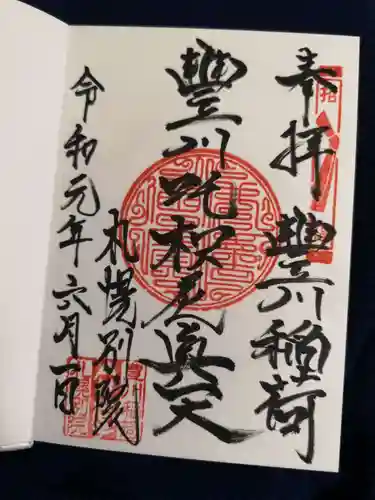 奉拝 豐川稲荷
豐川吒枳尼真天
札幌別院
令和元年六月一日